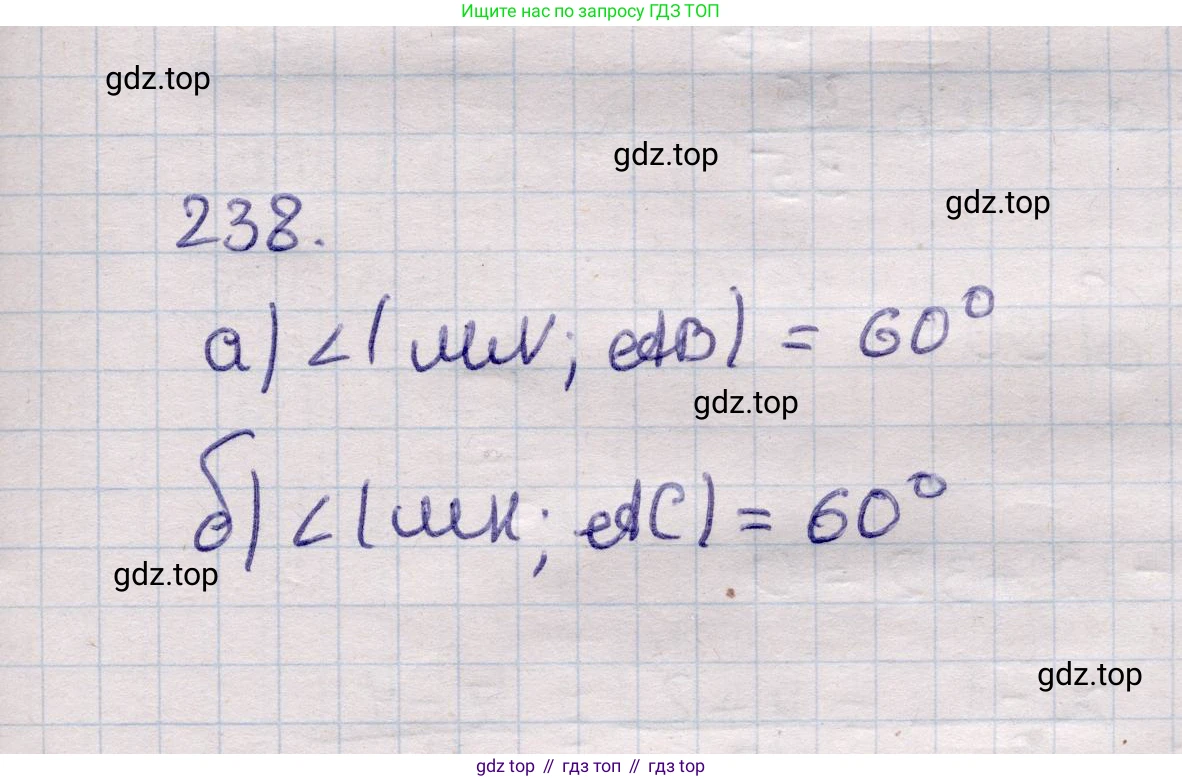 Ищите нас по запросу ГДЗ ТОП
gdz.top
gdz.top
gdz.top
238.
а) ∠(MN; AB) = 60°
gdz.top
б) ∠(MK; AC) = 60°
gdz.top
gdz.top
gdz top // гдз топ // гдз top